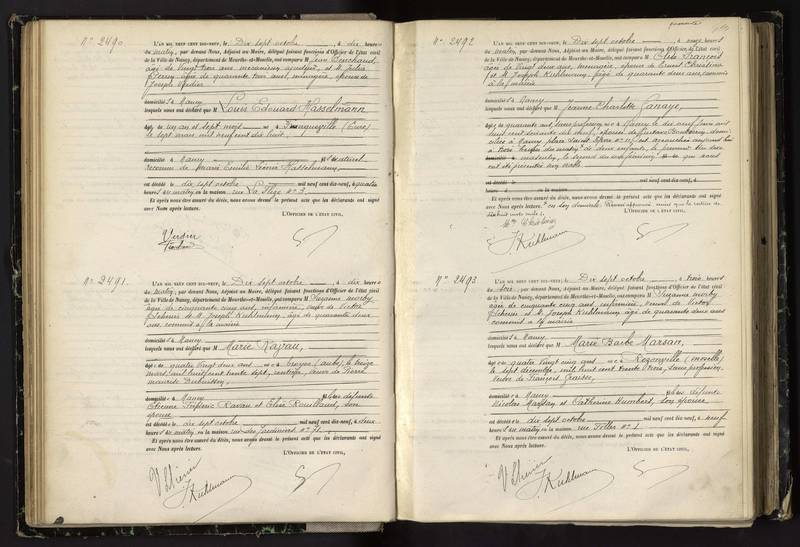 N° 2490
L'AN MIL NEUF CENT DIX-NEUF, le Dix sept octobre, à dix heures
du matin, par devant Nous, Adjoint au Maire, délégué faisant fonctions d'Officier de l'état civil
de la Ville de Nancy, département de Meurthe-et-Moselle, ont comparu M
âgé de vingt trois ans et M. Julie
âgée de quarante ans, ménagère, épouse de
Joseph Verdier
domicilié à Nancy
lesquels nous ont déclaré que M Louis Edouard Hasselmann
âgé de un an et sept mois né à (Eure)
le sept mars mil neuf cent dix huit
domicilié à Nancy, fils naturel
reconnu de Marie Emilie Hasselmann,
est décédé le dix sept octobre mil neuf cent dix-neuf, à quatre
heures du matin en la maison rue N° 3
Et après nous être assuré du décès, nous avons dressé le présent acte que les déclarants ont signé
avec Nous après lecture.
L'OFFICIER DE L'ÉTAT CIVIL,
Verdier
N° 2491.
L'AN MIL NEUF CENT DIX-NEUF, le Dix sept octobre, à dix heures
du matin, par devant Nous, Adjoint au Maire, délégué faisant fonctions d'Officier de l'état civil
de la Ville de Nancy, département de Meurthe-et-Moselle, ont comparu M Suzanne
âgée de cinquante cinq ans, infirmière, veuve de Victor
et M. Joseph Kuhlmann, âgé de quarante deux
ans, commis à la mairie
domiciliés à Nancy
lesquels nous ont déclaré que M Marie Ravau,
âgée de quatre vingt deux ans née à Troyes (Aube), le treize
mars mil huit cent trente sept, rentière, veuve de Pierre
Maurice Dubuisson,
domiciliée à Nancy, fille des défunts
Etienne Frédéric Ravau et Elise Rouilland, son
épouse
est décédée le dix sept octobre mil neuf cent dix-neuf, à deux
heures du matin, en la maison rue des Jardiniers N° 71
Et après nous être assuré du décès, nous avons dressé le présent acte que les déclarants ont signé
avec Nous après lecture.
L'OFFICIER DE L'ÉTAT CIVIL,
J. Kuhlmann
N° 2492
L'AN MIL NEUF CENT DIX-NEUF, le Dix sept octobre, à onze heures
du matin, par devant Nous, Adjoint au Maire, délégué faisant fonctions d'Officier de l'état civil
de la Ville de Nancy, département de Meurthe-et-Moselle, ont comparu M François
âgée de vingt deux ans, ménagère, épouse de
et M. Joseph Kuhlmann, âgé de quarante deux ans, commis
à la mairie
domiciliés à Nancy
lesquels nous ont déclaré que M Jeanne Charlotte Canaye,
âgée de quarante ans, sans profession, née à Nancy le dix neuf
mil huit cent soixante dix neuf, épouse de Gustave domi-
ciliés à Nancy, place Saint Epvre N° 11, est accouchée
à trois heures du matin de deux enfants, le premier du sexe
masculin, le second du sexe féminin qui nous
ont été présentés sans vie.
est décédé le mil neuf cent dix-neuf, à
heures en la maison
Et après nous être assuré du décès, nous avons dressé le présent acte que les déclarants ont signé
avec Nous après lecture.
L'OFFICIER DE L'ÉTAT CIVIL,
J. Kuhlmann
N° 2493
L'AN MIL NEUF CENT DIX-NEUF, le Dix sept octobre, à trois heures
du soir, par devant Nous, Adjoint au Maire, délégué faisant fonctions d'Officier de l'état civil
de la Ville de Nancy, département de Meurthe-et-Moselle, ont comparu M Suzanne
âgée de cinquante cinq ans, infirmière, veuve de Victor
et M. Joseph Kuhlmann, âgé de quarante deux ans
commis à la mairie
domiciliés à Nancy
lesquels nous ont déclaré que M Marie Barbe Marsan,
âgée de quatre vingt cinq ans née à Rezonville (Moselle)
le sept décembre mil huit cent trente trois, sans profession,
veuve de François Grasse,
domiciliée à Nancy, fille des défunts
Nicolas Marsan et Catherine Humbert, son épouse
est décédée le dix sept octobre mil neuf cent dix-neuf, à neuf
heures du matin en la maison rue N° 1
Et après nous être assuré du décès, nous avons dressé le présent acte que les déclarants ont signé
avec Nous après lecture.
L'OFFICIER DE L'ÉTAT CIVIL,
J. Kuhlmann